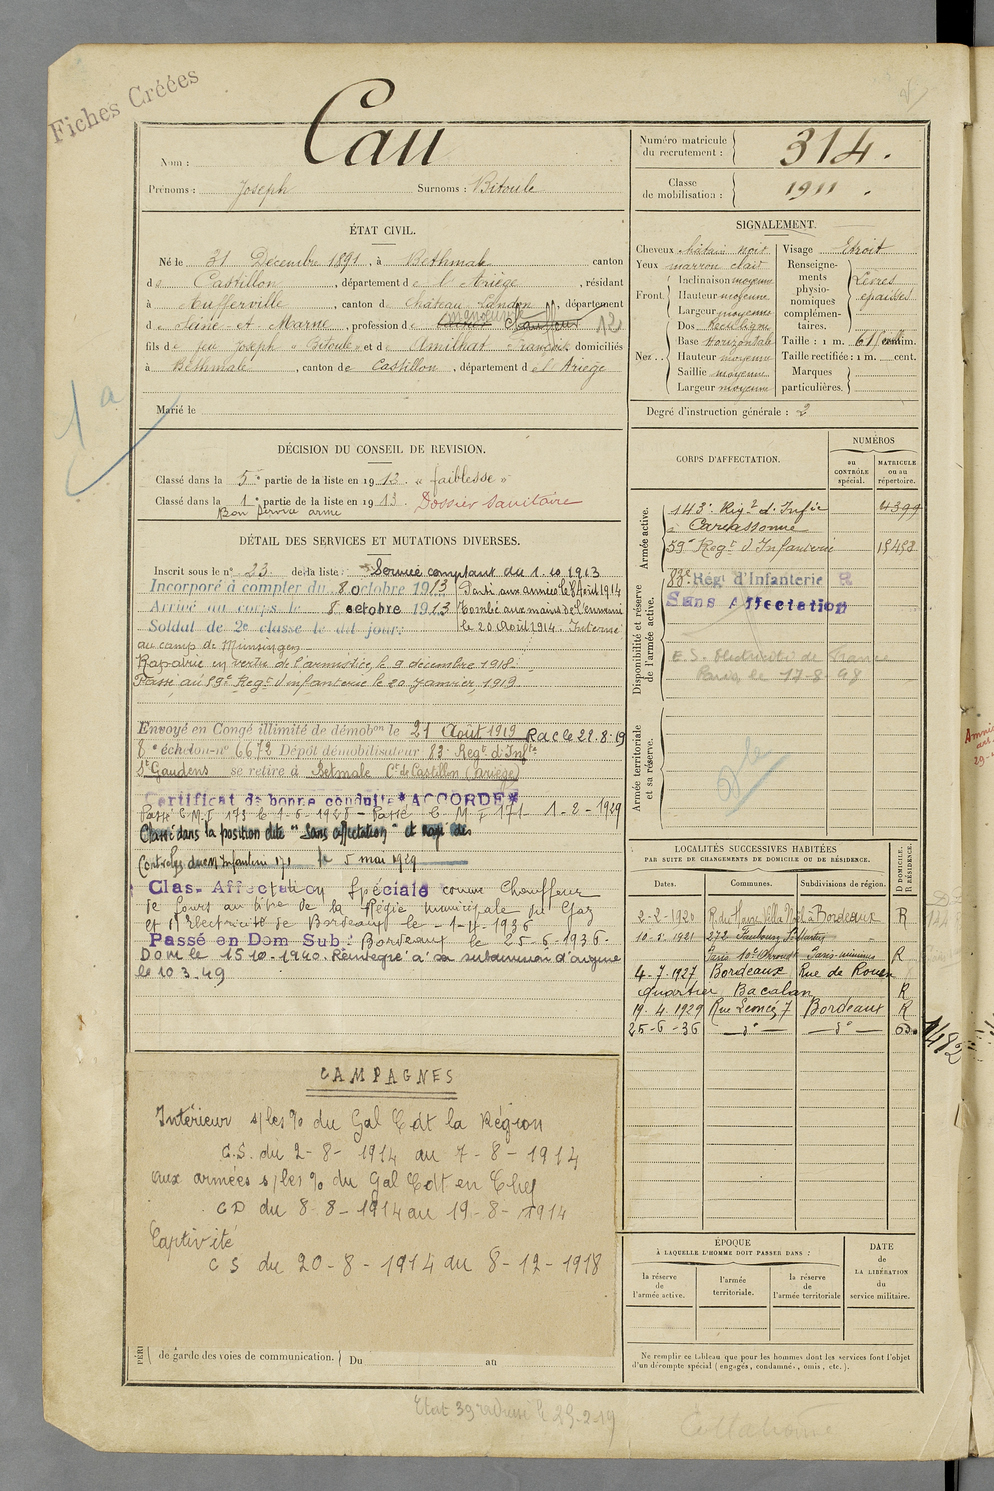 Fiches Créées
Nom : Cau
Prénoms : Joseph Surnoms : Bitoule
Numéro matricule du recrutement : 314.
Classe de mobilisation : 1911.
ÉTAT CIVIL.
Né le 31 Décembre 1891, à Bethmale canton
de Castillon, département de l'Ariège, résidant
à Aufferville, canton de Château-Landon, département
de Seine-et-Marne, profession de manœuvre Chauffeur 12
fils de feu Joseph "Bitoule" et de Amilhat Françoise domiciliés
à Bethmale, canton de Castillon, département d l'Ariège
Marié le
SIGNALEMENT.
Cheveux châtain noir
Yeux marron clair
Front : Inclinaison moyenne
Hauteur moyenne
Largeur moyenne
Nez : Dos Rectiligne
Base Horizontale
Hauteur moyenne
Saillie moyenne
Largeur moyenne
Visage Etroit
Renseignements physionomiques complémentaires. Lèvres épaisses
Taille : 1 m. 61 centim.
Taille rectifiée : 1 m. cent.
Marques particulières.
Degré d'instruction générale : 2
1 a
DÉCISION DU CONSEIL DE REVISION.
Classé dans la 5e partie de la liste en 1913. "faiblesse"
Classé dans la 1e partie de la liste en 1913. Dossier sanitaire
Bon service armé
DÉTAIL DES SERVICES ET MUTATIONS DIVERSES.
Inscrit sous le n° 23 de la liste : Service comptant du 1.10.1913
Incorporé à compter du 8 octobre 1913 Parti aux armées le 8 Août 1914
Arrivé au corps le 8 octobre 1913 Tombé aux mains de l'ennemi
Soldat de 2e classe le dit jour. le 20 Août 1914. Interné
au camp de Munsingen
Rapatrié en vertu de l'armistice, le 9 décembre 1918.
Passé au 59e Regt d'infanterie le 20 Janvier 1919
Envoyé en Congé illimité de démobon le 21 Août 1919 R a c le 22.8.19
8e échelon n° 6672 Dépôt démobilisateur 83e Regt d'Infie
St Gaudens se retire à Betmale Con de Castillon (Ariège)
Certificat de bonne conduite *ACCORDÉ*
Passé C.M.I 173 le 1-6-1928 - Passé C.M.I 171 1-2-1929
Classé dans la position dite "Sans affectation" et rayé des
Contrôles du CM Infanterie 171 le 5 mai 1929
Clas. Affectation Spéciale comme Chauffeur
de fours au titre de la Régie municipale du Gaz
et d'Electricité de Bordeaux le 1-4-1936
Passé en Dom Sub : Bordeaux le 25-6-1936.
Dom le 15 10-1940. Réintégré à sa subdivision d'origine
le 10.3.49
CORPS D'AFFECTATION.
NUMÉROS
au CONTRÔLE spécial.
MATRICULE ou au répertoire.
Armée active.
143e Regt d'Infie 4399
à Carcassonne
59e Regt d'Infanterie 15453
Disponibilité et réserve de l'armée active.
83e Régt d'Infanterie
Sans Affectation
E.S. Electricité de France
Paris, le 17-8-48
Armée territoriale et sa réserve.
LOCALITÉS SUCCESSIVES HABITÉES
PAR SUITE DE CHANGEMENTS DE DOMICILE OU DE RÉSIDENCE.
Dates. Communes. Subdivisions de région. D DOMICILE. R RÉSIDENCE.
2-2-1920 Bordeaux R
10-5-1921 272 Faubourg St Martin
Paris 10e Arrondt R
4-7-1927 Bordeaux Rue de Rouen
quartier Bacalan R
19.4.1929 7 Bordeaux R
25-6-36 — d° — — d° —
CAMPAGNES
Intérieur s/les % du Gal Cdt la Région
C.S. du 2-8-1914 au 7-8-1914
aux armées s/les % du Gal Cdt en Chef
CD du 8-8-1914 au 19-8-1914
Captivité
C S du 20-8-1914 au 8-12-1918
PÉRI
de garde des voies de communication. Du au
ÉPOQUE
À LAQUELLE L'HOMME DOIT PASSER DANS :
la réserve de l'armée active.
l'armée territoriale.
la réserve de l'armée territoriale
DATE de LA LIBÉRATION du service militaire.
Ne remplir ce tableau que pour les hommes dont les services font l'objet
d'un décompte spécial (engagés, condamnés, omis, etc.).
Etat 39 adressé le 25-2-19